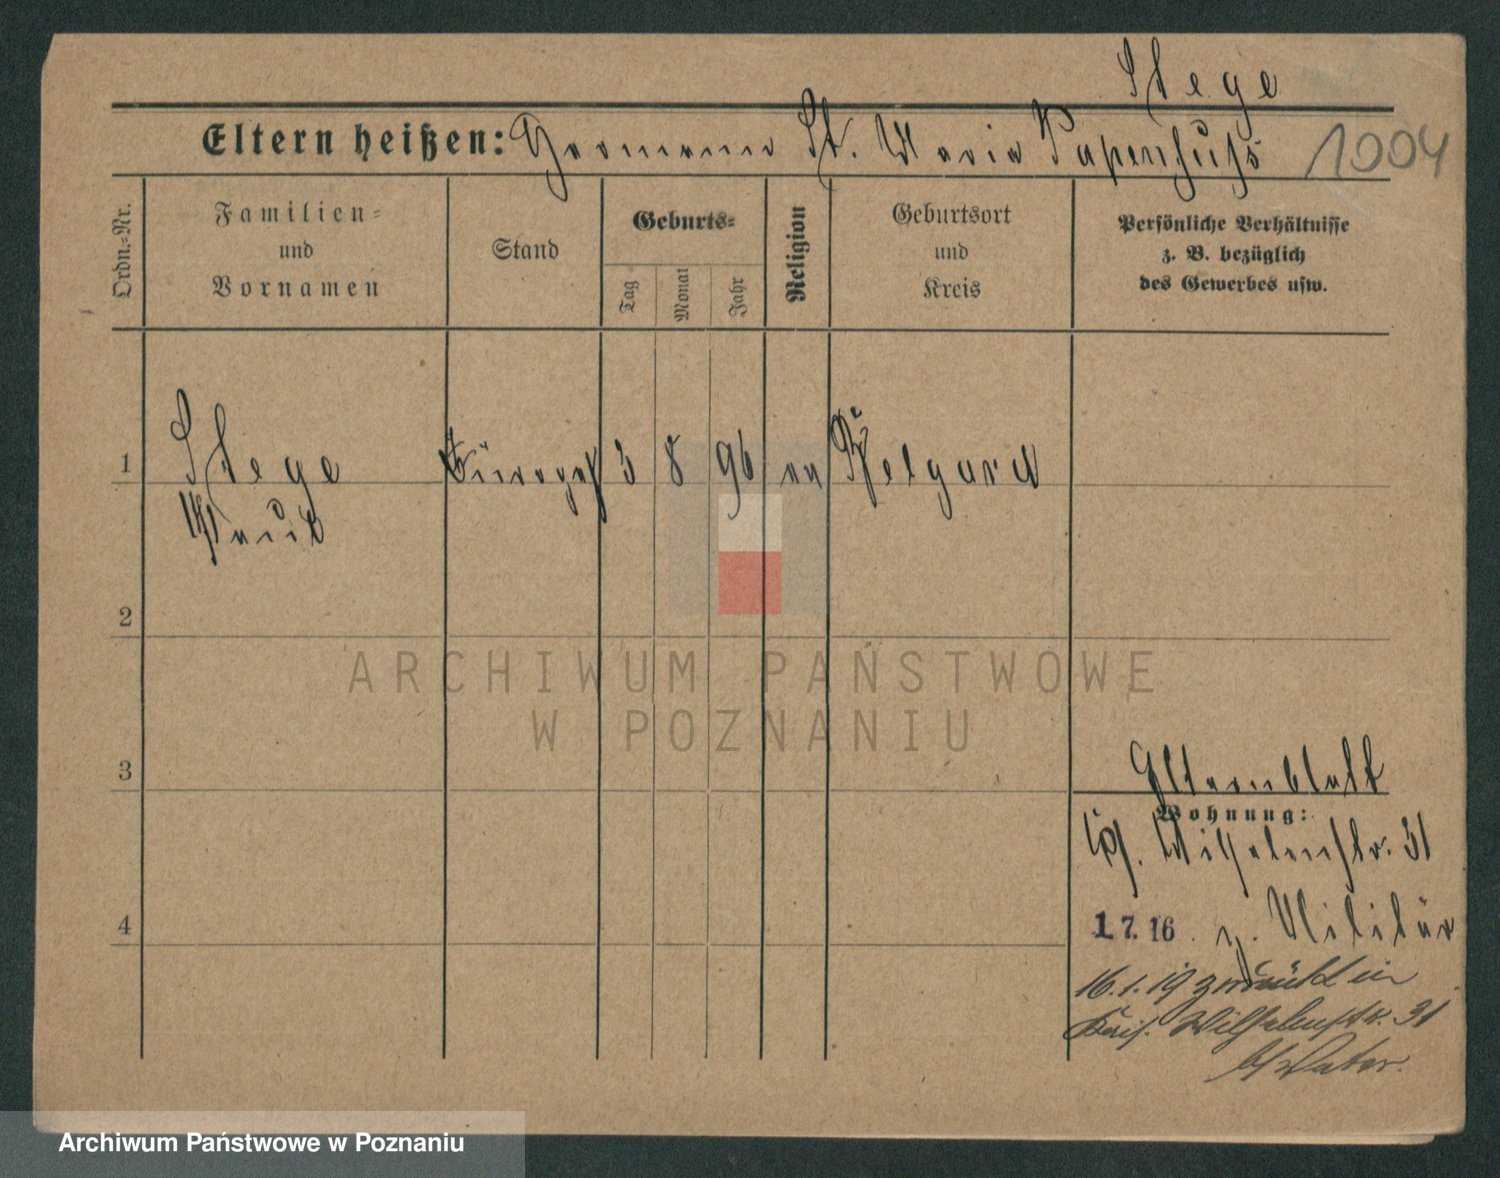 Stege
Eltern heißen: Hermann St. Maria Papenfuß
1004
Ordn.=Nr.
Familien=
und
Vornamen
Stand
Geburts=
Tag
Monat
Jahr
Religion
Geburtsort
und
Kreis
Persönliche Verhältnisse
z. B. bezüglich
des Gewerbes usw.
1
Stege
Bürogeh
3
8
96
ev
Belgard
Paul
2
3
4
Elternblatt
Wohnung:
Kais. Wilhelmstr. 31
1.7.16 z. Militär
16.1.19 zurück in
Kais. Wilhelmstr. 31
b/ Vater.
ARCHIWUM PAŃSTWOWE
W POZNANIU
Archiwum Państwowe w Poznaniu